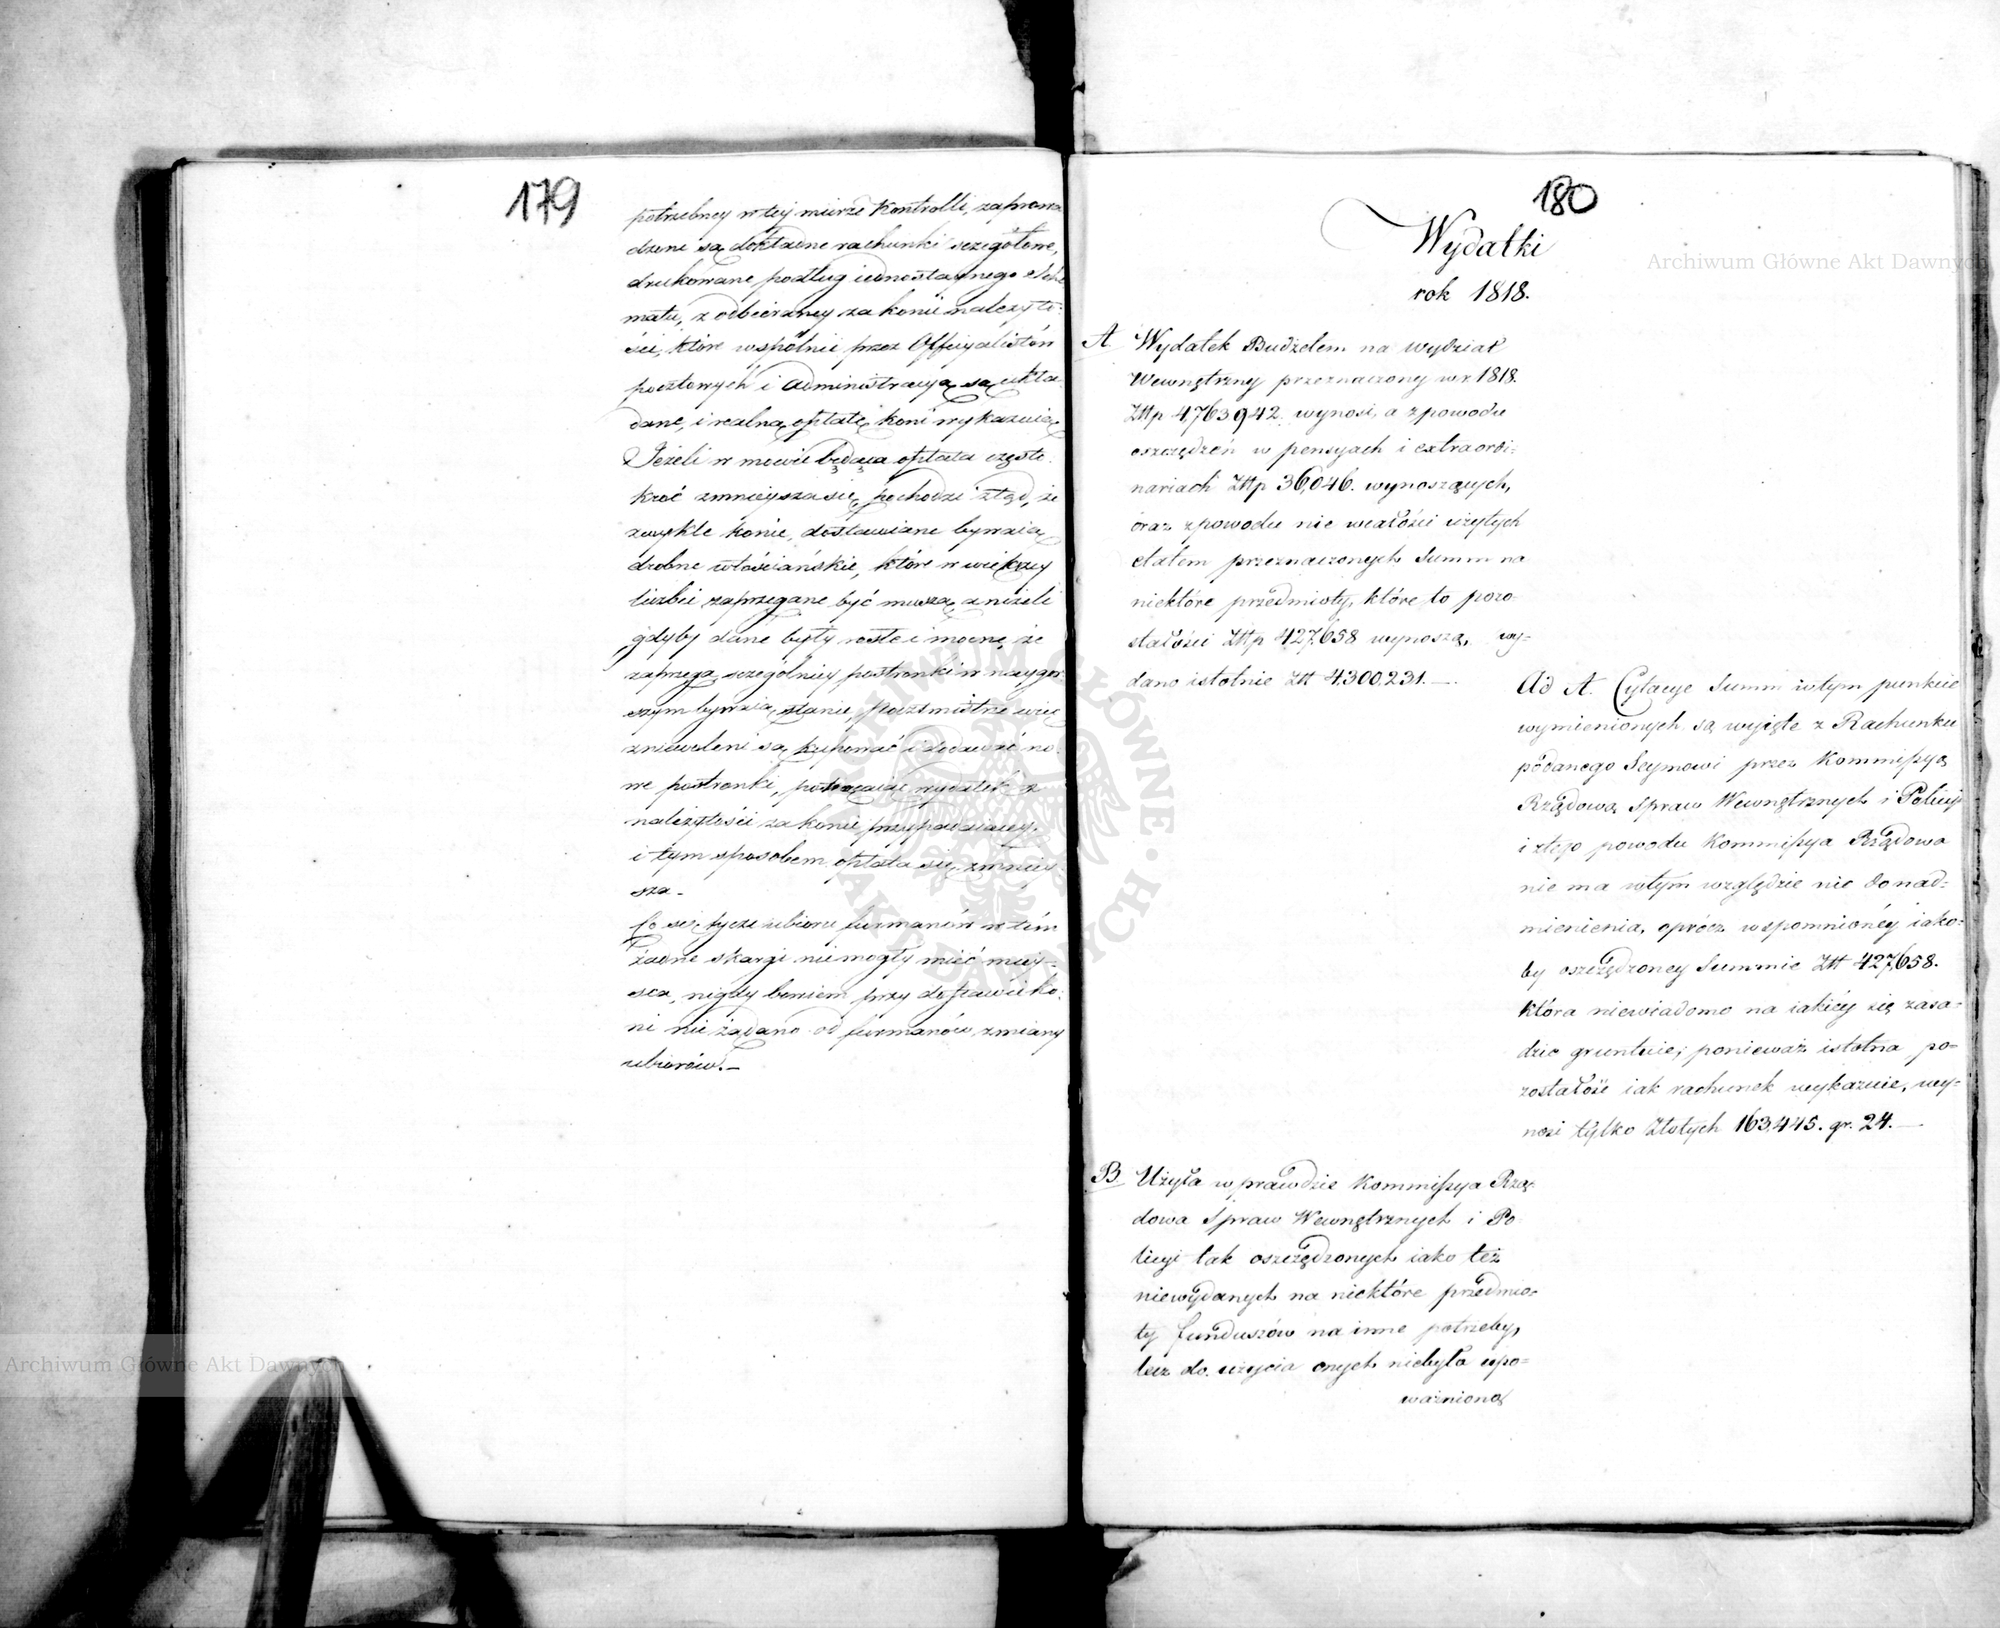 179
potrzebney w tey mierze Kontrolli, zaprowa
dzone są dokładne rachunki szczegółowe,
drukowane podług iednostaynego Sche
matu, z odbieraney za konie należyto:
ści, które wspólnie przez Officyalistów
pocztowych i administracyą są ukła-
dane, i realną opłatę koni wykazuią
Jeżeli w mowie będąca opłata często:
kroć zmnieysza się, pochodzi ztąd, że
zwykle konie, dostawiane bywaią
drobne włościańskie, które w większey
liczbie zaprzęgane być muszą, aniżeli
gdyby dane były rosłe i mocne, że
zaprzęga, szczególniey postronki w naygor:
szym bywaią stanie, poczmistrze więc
zniewoleni są kupować i dodawać no:
we postronki, potrącaiąc wydatek z
należytości za konie przypadaiącey,
i tym sposobem opłata się zmniey
sza -
Co się tycze ubioru furmanów w tém
żadne skargi nie mogły mieć miey-
sca, nigdy bowiem przy dostawie ko:
ni nie żądano od furmanów zmiany
ubiorów. -
180
Wydatki
rok 1818.
A. Wydatek Budżetem na wydział
Wewnętrzny przeznaczony w r. 1818.
Złtp 4,763,942. wynosi, a z powodu
oszczędzeń w pensyach i extraordi:
nariach Złtp 36,046. wynoszących,
oraz z powodu nie w całości użytych
etatem przeznaczonych Summ na
niektóre przedmioty, które to pozo-
stałości Złtp 427,658 wynoszą, wy-
dano istotnie Złt 4,300,231. —
Ad A. Cytacye Summ w tym punkcie
wymienionych są wyięte z Rachunku
podanego Seymowi przez Kommissyą
Rządową Spraw Wewnętrznych i Policyi
i z tego powodu Kommissya Rządowa
nie ma w tym względzie nic do nad-
mienienia, oprócz wspomnionéy iako-
by oszczędzoney Summie Złt 427,658.
która niewiadomo na iakiéy się zasa-
dzie gruntuie; ponieważ istotna po-
zostałość iak rachunek wykazuie, wy-
nosi tylko Złotych 163,445. gr. 24. —
B. Użyła w prawdzie Kommissya Rzą-
dowa Spraw Wewnętrznych i Po
licyi tak oszczędzonych iako też
niewydanych na niektóre przedmio-
ty funduszów na inne potrzeby,
lecz do użycia onych niebyła upo-
ważnioną